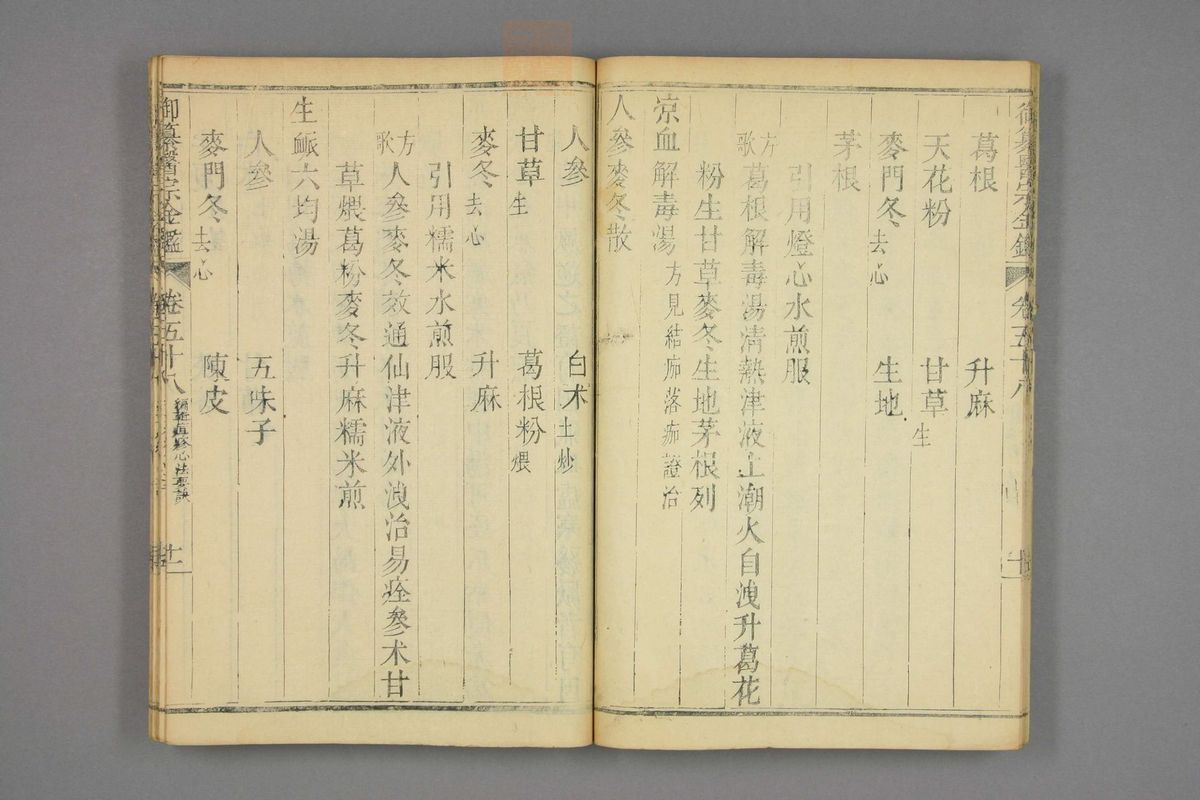 御纂醫宗金鑑 卷五十八
葛根 升麻
天花粉 甘草生
麥門冬去心 生地
茅根
引用燈心水煎服
方歌 葛根解毒湯清熱津液上潮火自洩升葛花
粉生甘草麥冬生地茅根列
涼血解毒湯 方見結痂落痂證治
人參麥冬散
人參 白朮土炒
甘草生 葛根粉煨
麥冬去心 升麻
引用糯米水煎服
方歌 人參麥冬效通仙津液外洩治易痊參朮甘
草煨葛粉麥冬升麻糯米煎
生脈六均湯
人參 五味子
麥門冬去心 陳皮
御纂醫宗金鑑 卷五十八 編輯痘疹心法要訣 十一